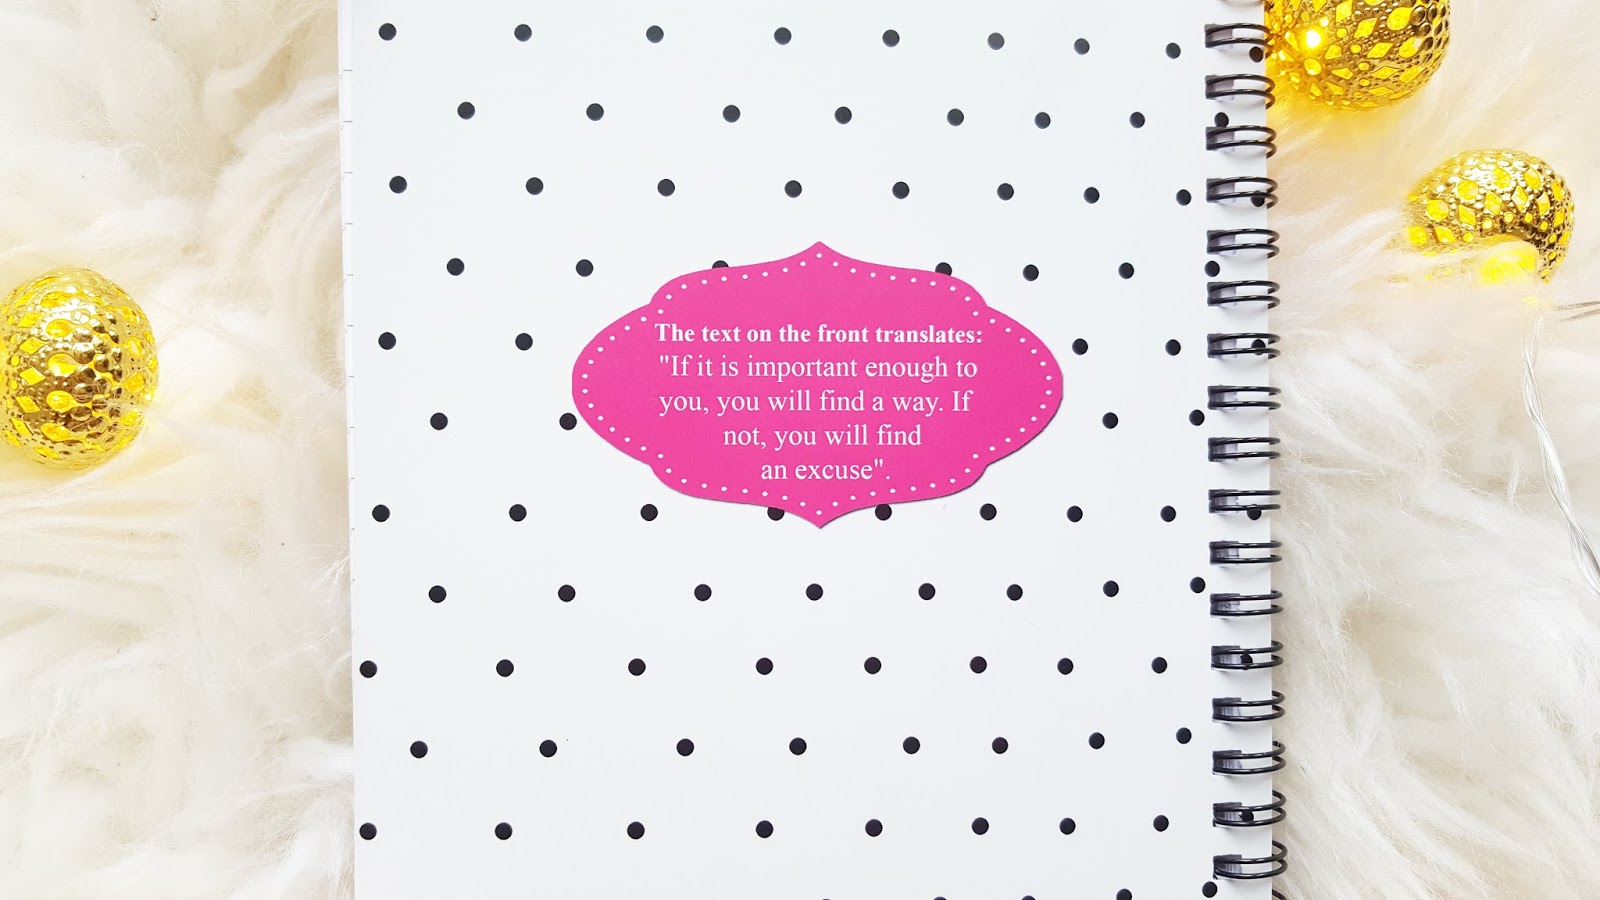 The text on the front translates:
"If it is important enough to
you, you will find a way. If
not, you will find
an excuse".